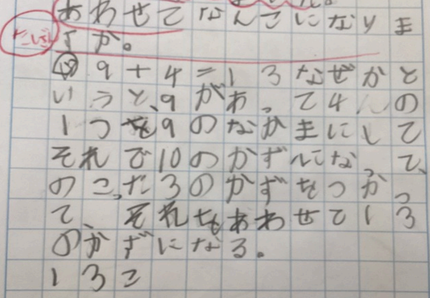 あわせてなんこになりま
すか。
9+4=13なぜかと
いうと、9があって4んの
1つを9のなかまにして
それで10のかずになって、
のこった3のかずをつかっ
て、それをあわせて13
のかずになる。
13こ